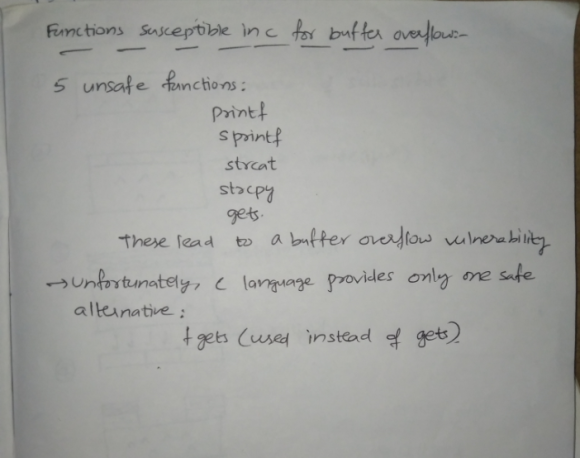 Functions susceptible in c for buffer overflow:-
5 unsafe functions:
printf
sprintf
strcat
strcpy
gets.
These lead to a buffer overflow vulnerability
→ Unfortunately, C language provides only one safe
alternative:
fgets (used instead of gets).